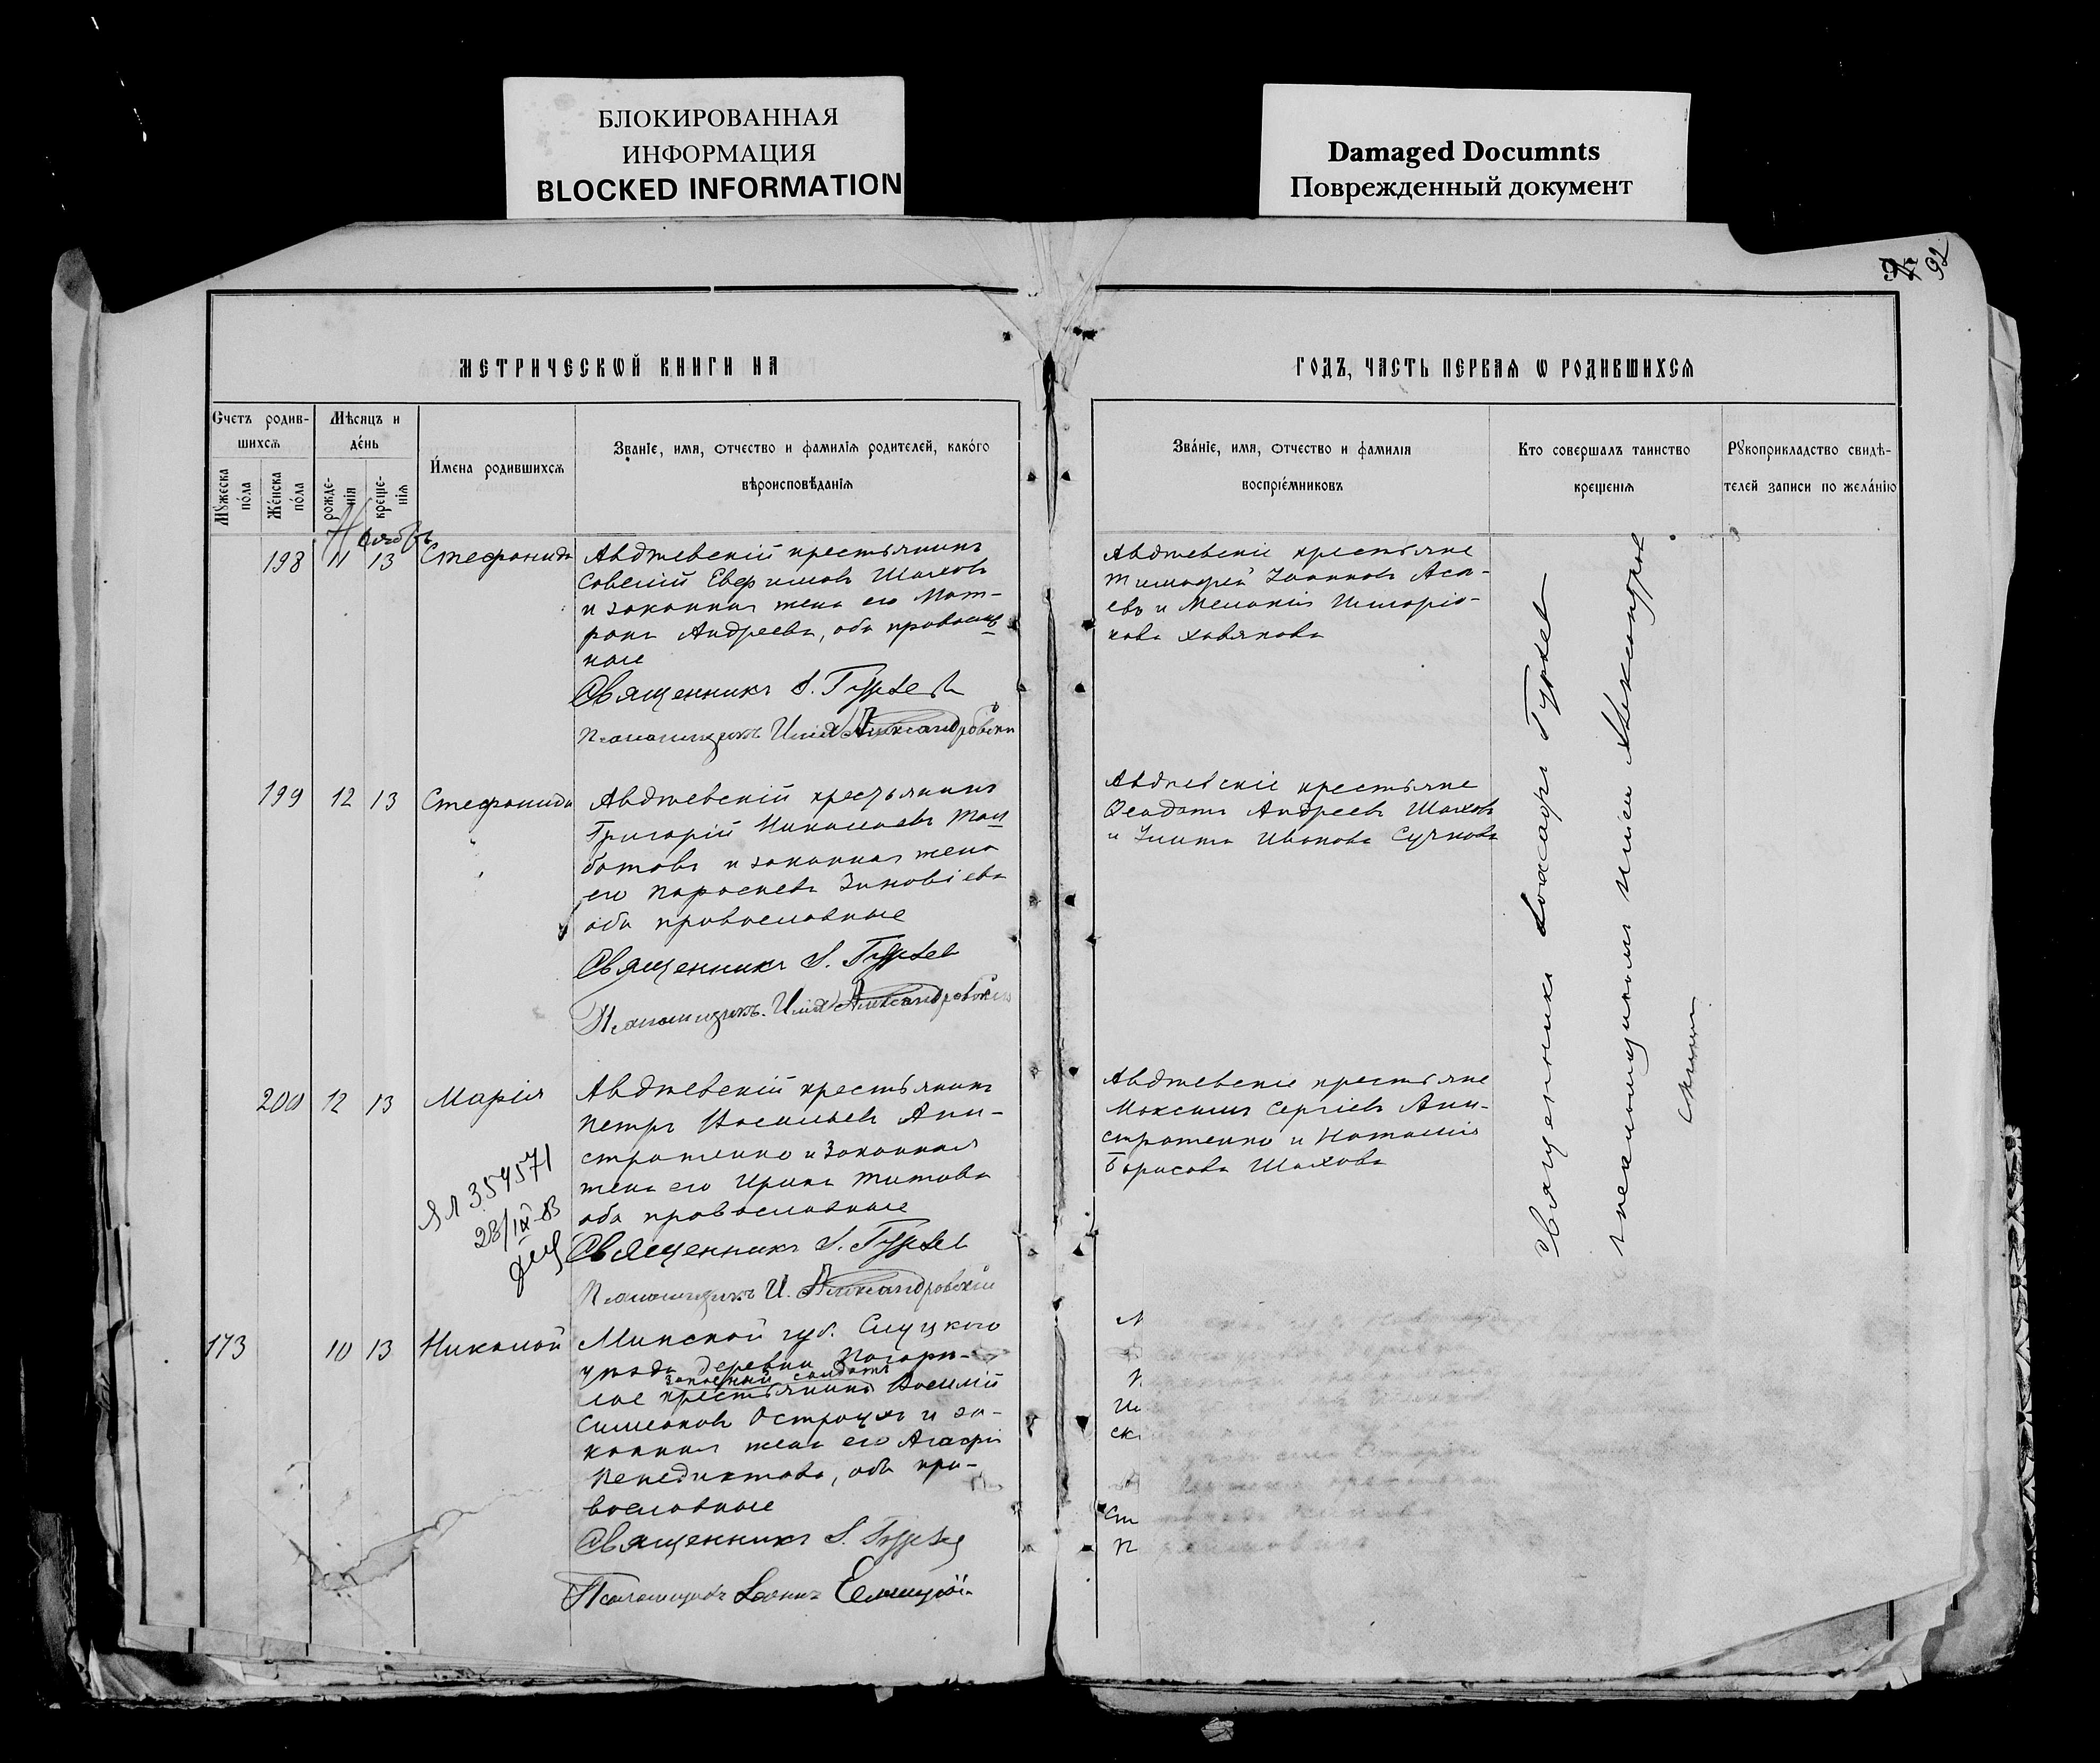 БЛОКИРОВАННАЯ
ИНФОРМАЦИЯ
BLOCKED INFORMATION
Damaged Documnts
Поврежденный документ
92
МЕТРИЧЕСКѠЙ КНИГИ НА
ГОДЪ, ЧАСТЬ ПЕРВАЯ Ѡ РОДИВШИХСЯ
Счетъ родив-
шихся
Мужеска
пола
Женска
пола
Мѣсяцъ и
день
рожде-
нія
креще-
нія
Имена родившихся
Званіе, имя, отчество и фамилія родителей, какого
вѣроисповѣданія
Званіе, имя, отчество и фамилія
воспріемниковъ
Кто совершалъ таинство
крещенія
Рукоприкладство свидѣ-
телей записи по желанію
Ноябрь
198 11 13 Стефанида
Авдѣевскій крестьянинъ
Савелій Евфимовъ Шаховъ
и законная жена его Мат-
рона Андреева, оба православ
ные
Священникъ І. Гурьевъ
Псаломщикъ Илія Александровскій
Авдѣевскіе крестьяне
Тимофей Іоанновъ Аса-
евъ и Меланія Иларіо-
нова
199 12 13 Стефанида
Авдѣевскій крестьянинъ
Григорій Николаевъ Тал
батовъ и законная жена
его Параскева Зиновіева
оба православные
Священникъ І. Гурьев
Псаломщикъ Илія Александровскій
Авдѣевскіе крестьяне
Феодотъ Андреевъ Шаховъ
и Иванова Сучкова
200 12 13 Марія
Авдѣевскій крестьянинъ
Петръ Васильевъ Ани-
стратенко и законная
жена его Ирина Титова
оба православные
Священникъ І. Гурьев
Псаломщикъ И. Александровскій
ЯЛ 354571
28/IX-83
Авдѣевскіе крестьяне
Максимъ Сергіевъ Ани-
стратенко и Наталія
Борисова Шахова
173 10 13 Николай
Минской губ. Слуцкого
уѣзда деревни Погори-
запасный солдатъ
лое крестьянинъ Василій
Симеоновъ Остроухъ и за-
конная жена его Агафія
Венедиктова, оба пра-
вославные
Священникъ І. Гурьев
Псаломщикъ Іоаннъ
Священникъ Іоасафъ Гурьевъ
съ псаломщикомъ Иліею Александров
скимъ